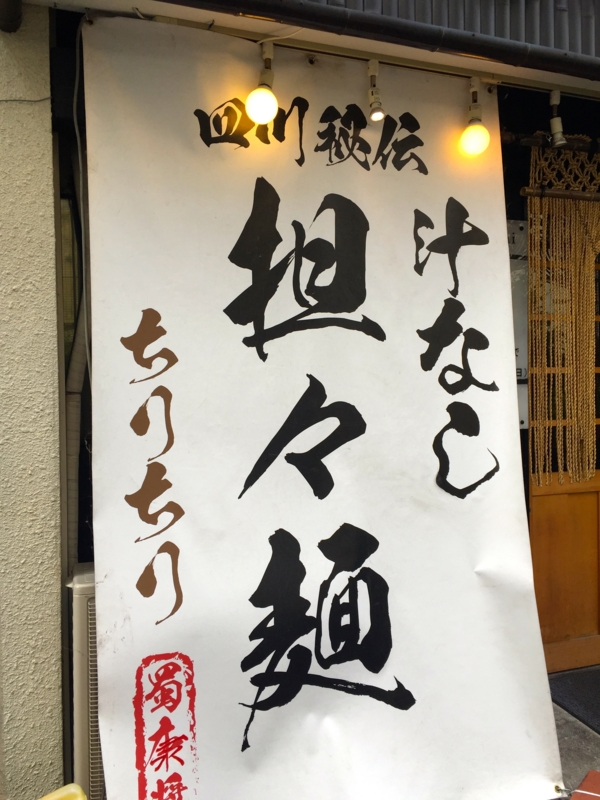 四川秘伝
汁なし
担々麺
ちりちり
蜀康